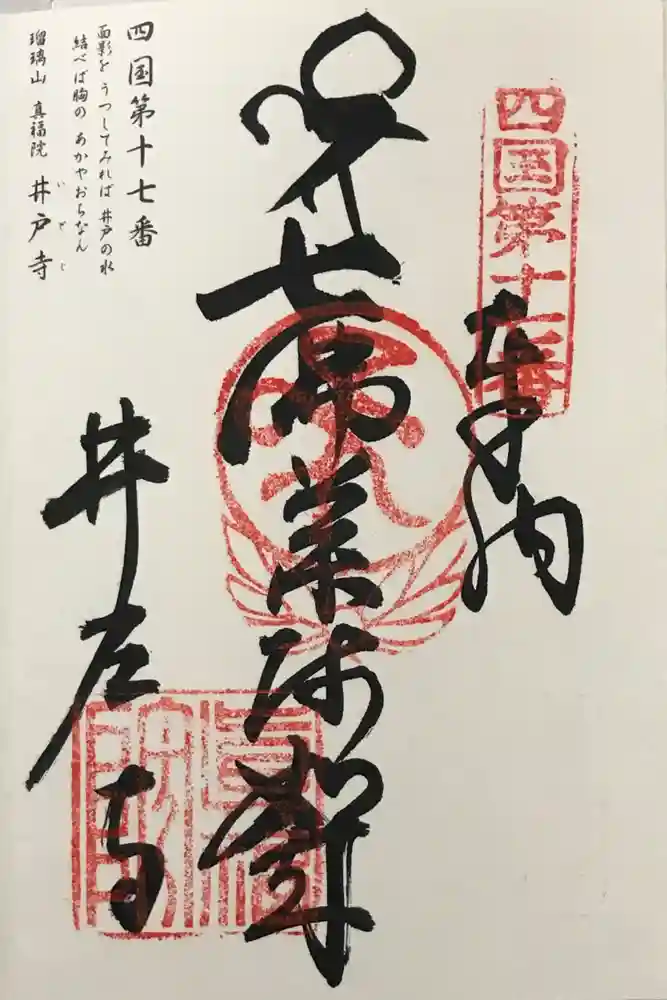 四国第十七番
奉納
七佛薬師
四国第十七番
面影を うつしてみれば 井戸の水
結べば胸の あかやおちなん
瑠璃山 真福院 井戸寺
いどじ
井戸寺